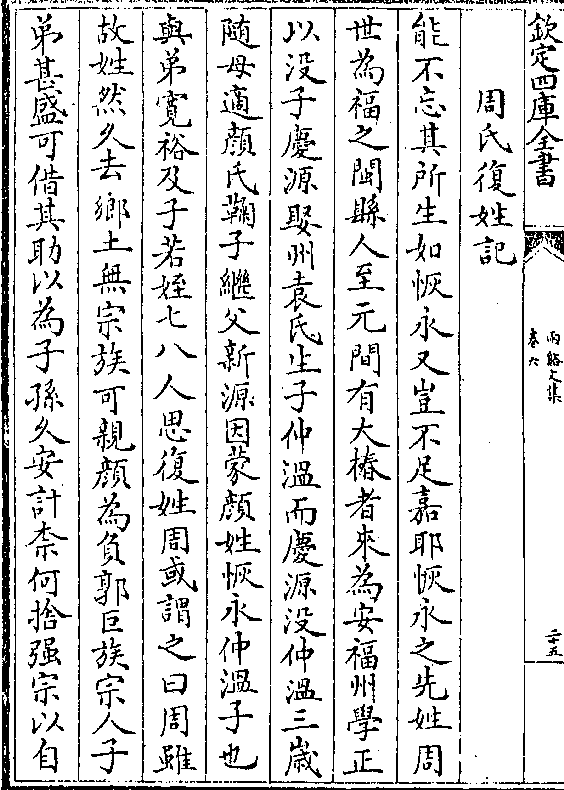 欽定四庫全書
兩谿文集
卷六
二十五
周氏復姓記
能不忘其所生如恢永又豈不足嘉耶恢永之先姓周
世為福之閩縣人至元間有大椿者來為安福州學正
以没子慶源娶州袁氏生子仲溫而慶源没仲溫三歲
随母適顔氏鞠子繼父新源因蒙顔姓恢永仲溫子也
與弟寛裕及子若姪七八人思復姓周或謂之曰周雖
故姓然久去鄉土無宗族可親顔為負郭巨族宗人子
弟甚盛可借其助以為子孫久安計柰何捨强宗以自